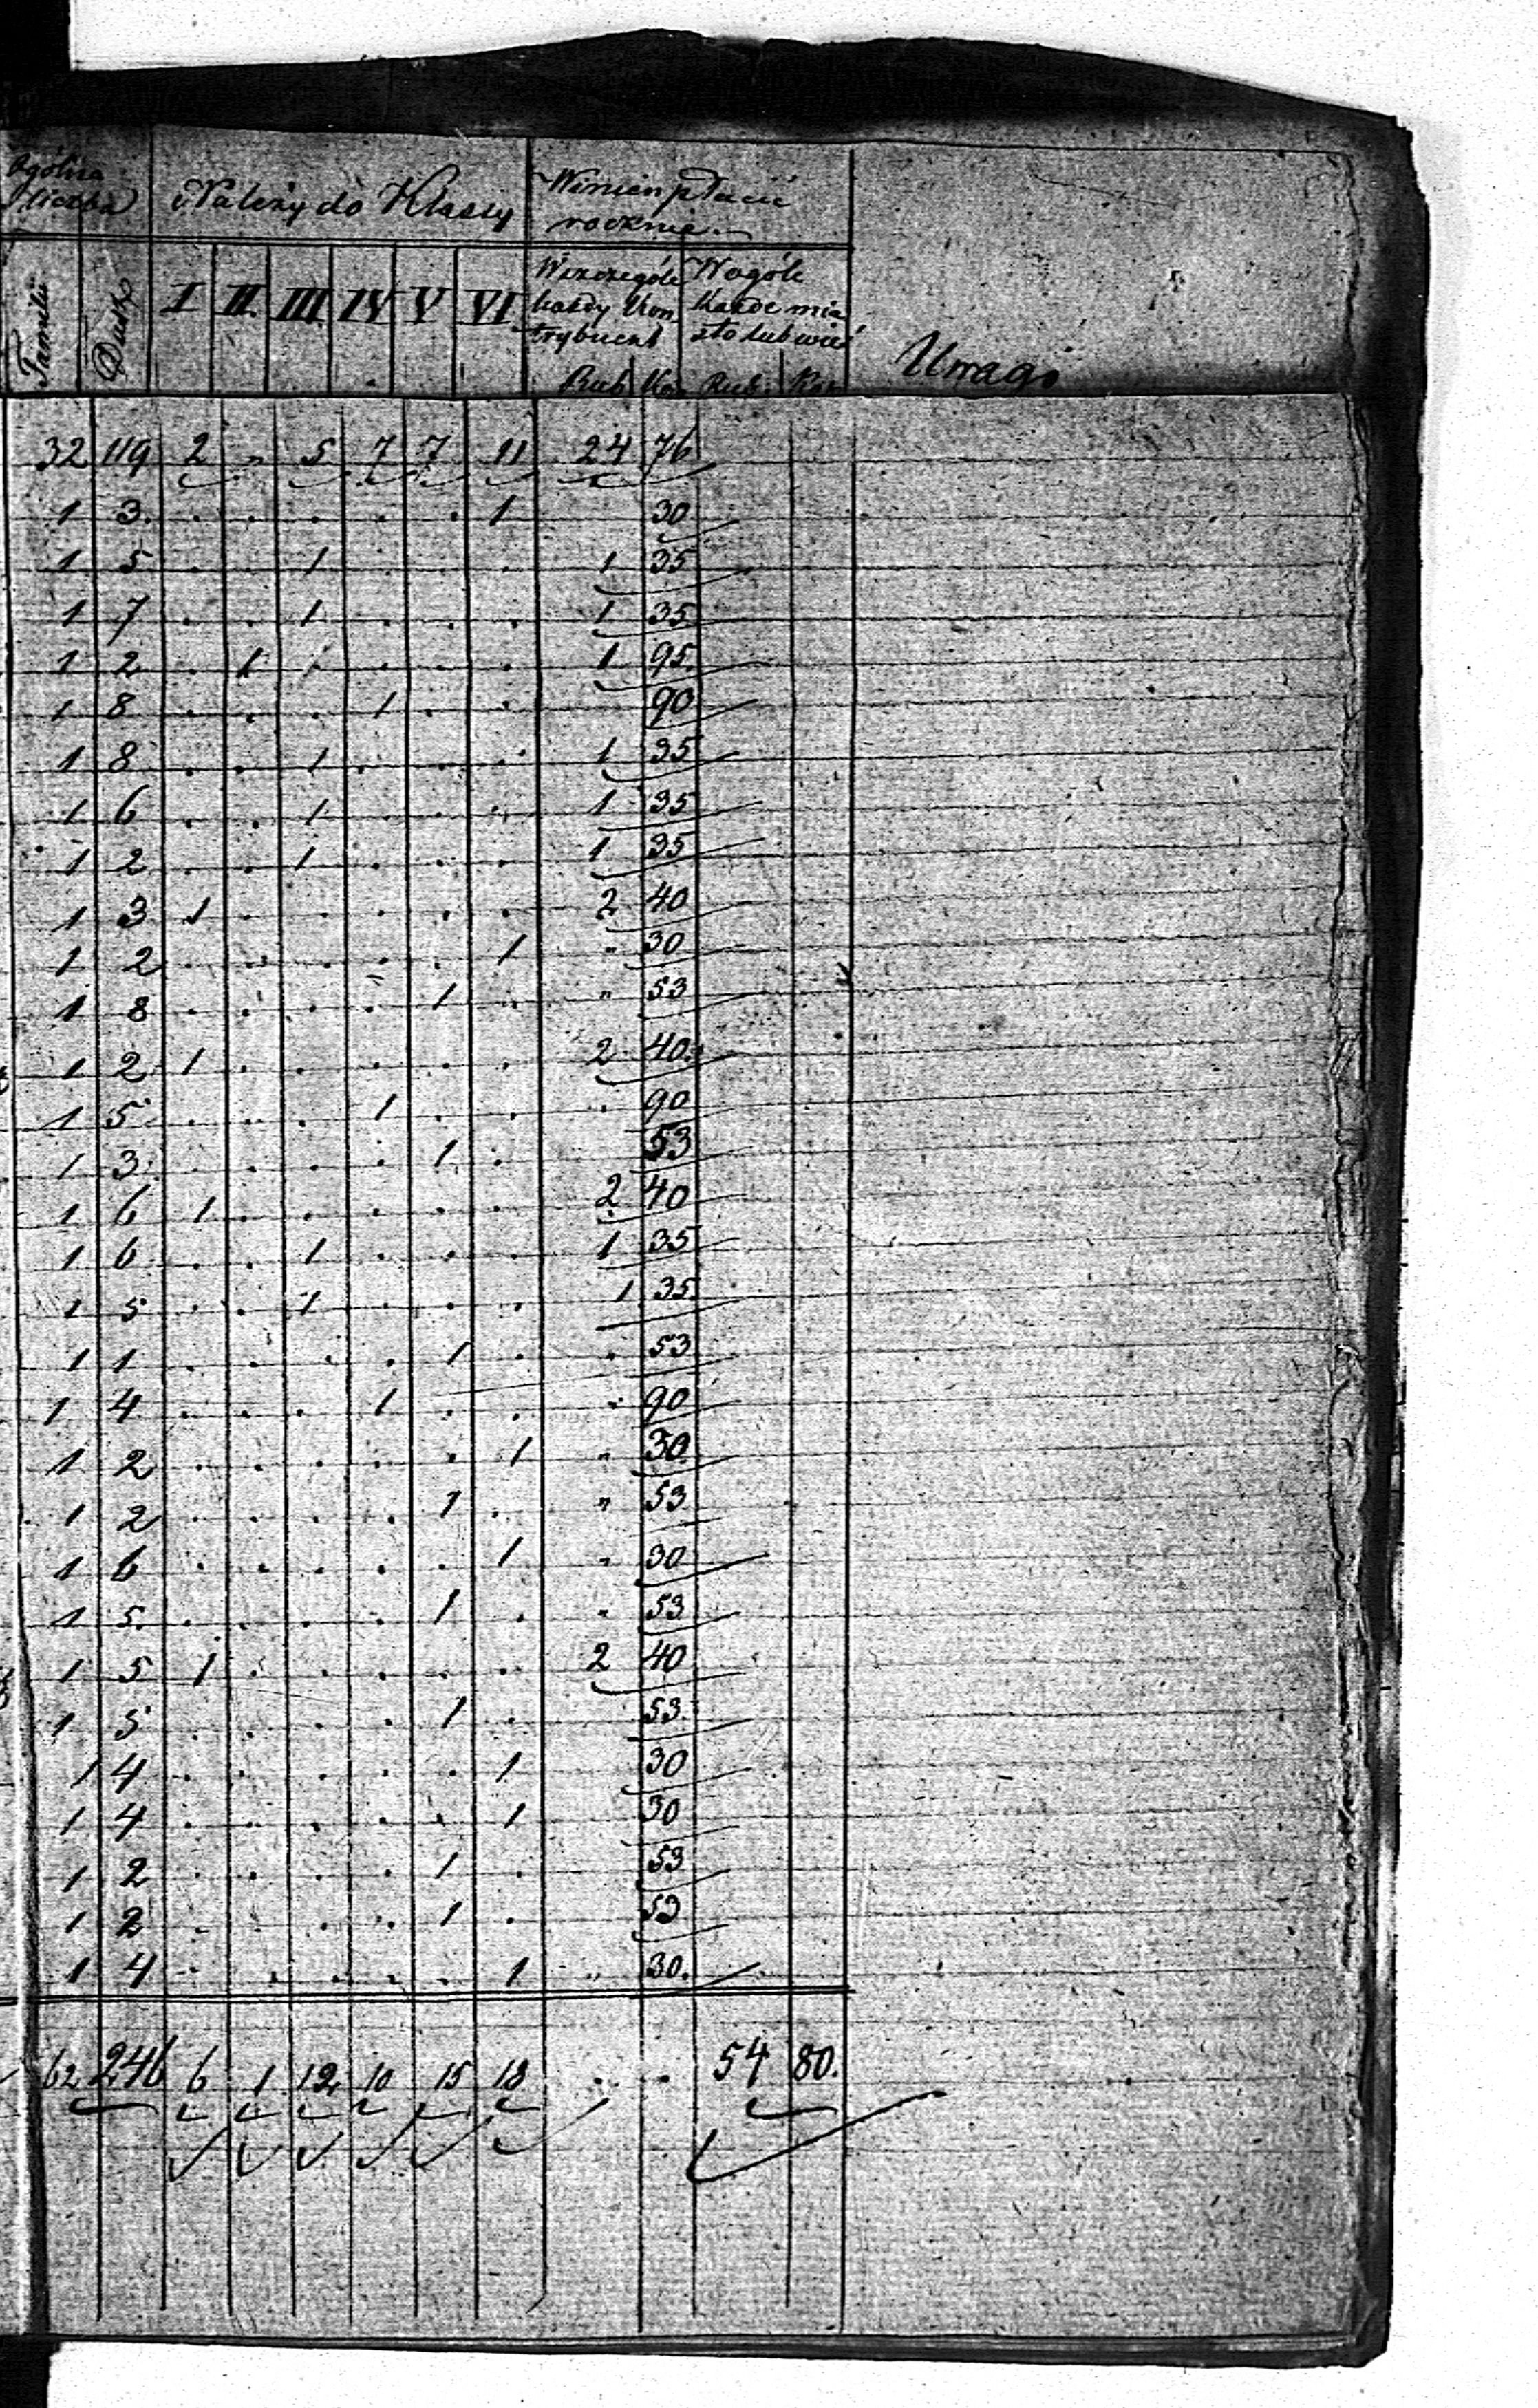 Ogólna liczba Należy do Klassy Winien płacić
rocznie.
Familii Dusz I II III IV V VI Wszczególe każdy kontrybuent Wogóle każde miasto lub wieś Uwagi
Rub. Kop. Rub. Kop.
32 119 2 " 5 7 7 11 24 76
1 3 . . . . . 1 30
1 5 . . 1 . . . 1 35
1 7 . . 1 . . . 1 35
1 2 . 1 . . . 1 95
1 8 . . . 1 . . 90
1 8 . . 1 . . . 1 35
1 6 . . 1 . . . 1 35
1 2 . . 1 . . . 1 35
1 3 1 . . . . . 2 40
1 2 . . . . . 1 " 30
1 8 . . . . 1 . " 53
1 2 1 . . . . . 2 40
1 5 . . . 1 . . . 90
1 3 . . . . 1 . 53
1 6 1 . . . . . 2 40
1 6 . . 1 . . . 1 35
1 5 . . 1 . . . 1 35
1 1 . . . . 1 . . 53
1 4 . . . 1 . . " 90
1 2 . . . . . 1 " 30
1 2 . . . . 1 . " 53
1 6 . . . . . 1 " 30
1 5 . . . . 1 . " 53
1 5 1 . . . . . 2 40
1 5 . . . . 1 . 53
1 4 . . . . . 1 30
1 4 . . . . . 1 30
1 2 . . . . 1 . 53
1 2 . . . . 1 . 53
1 4 . . . . . 1 " 30
62 246 6 1 12 10 15 18 . . 54 80.